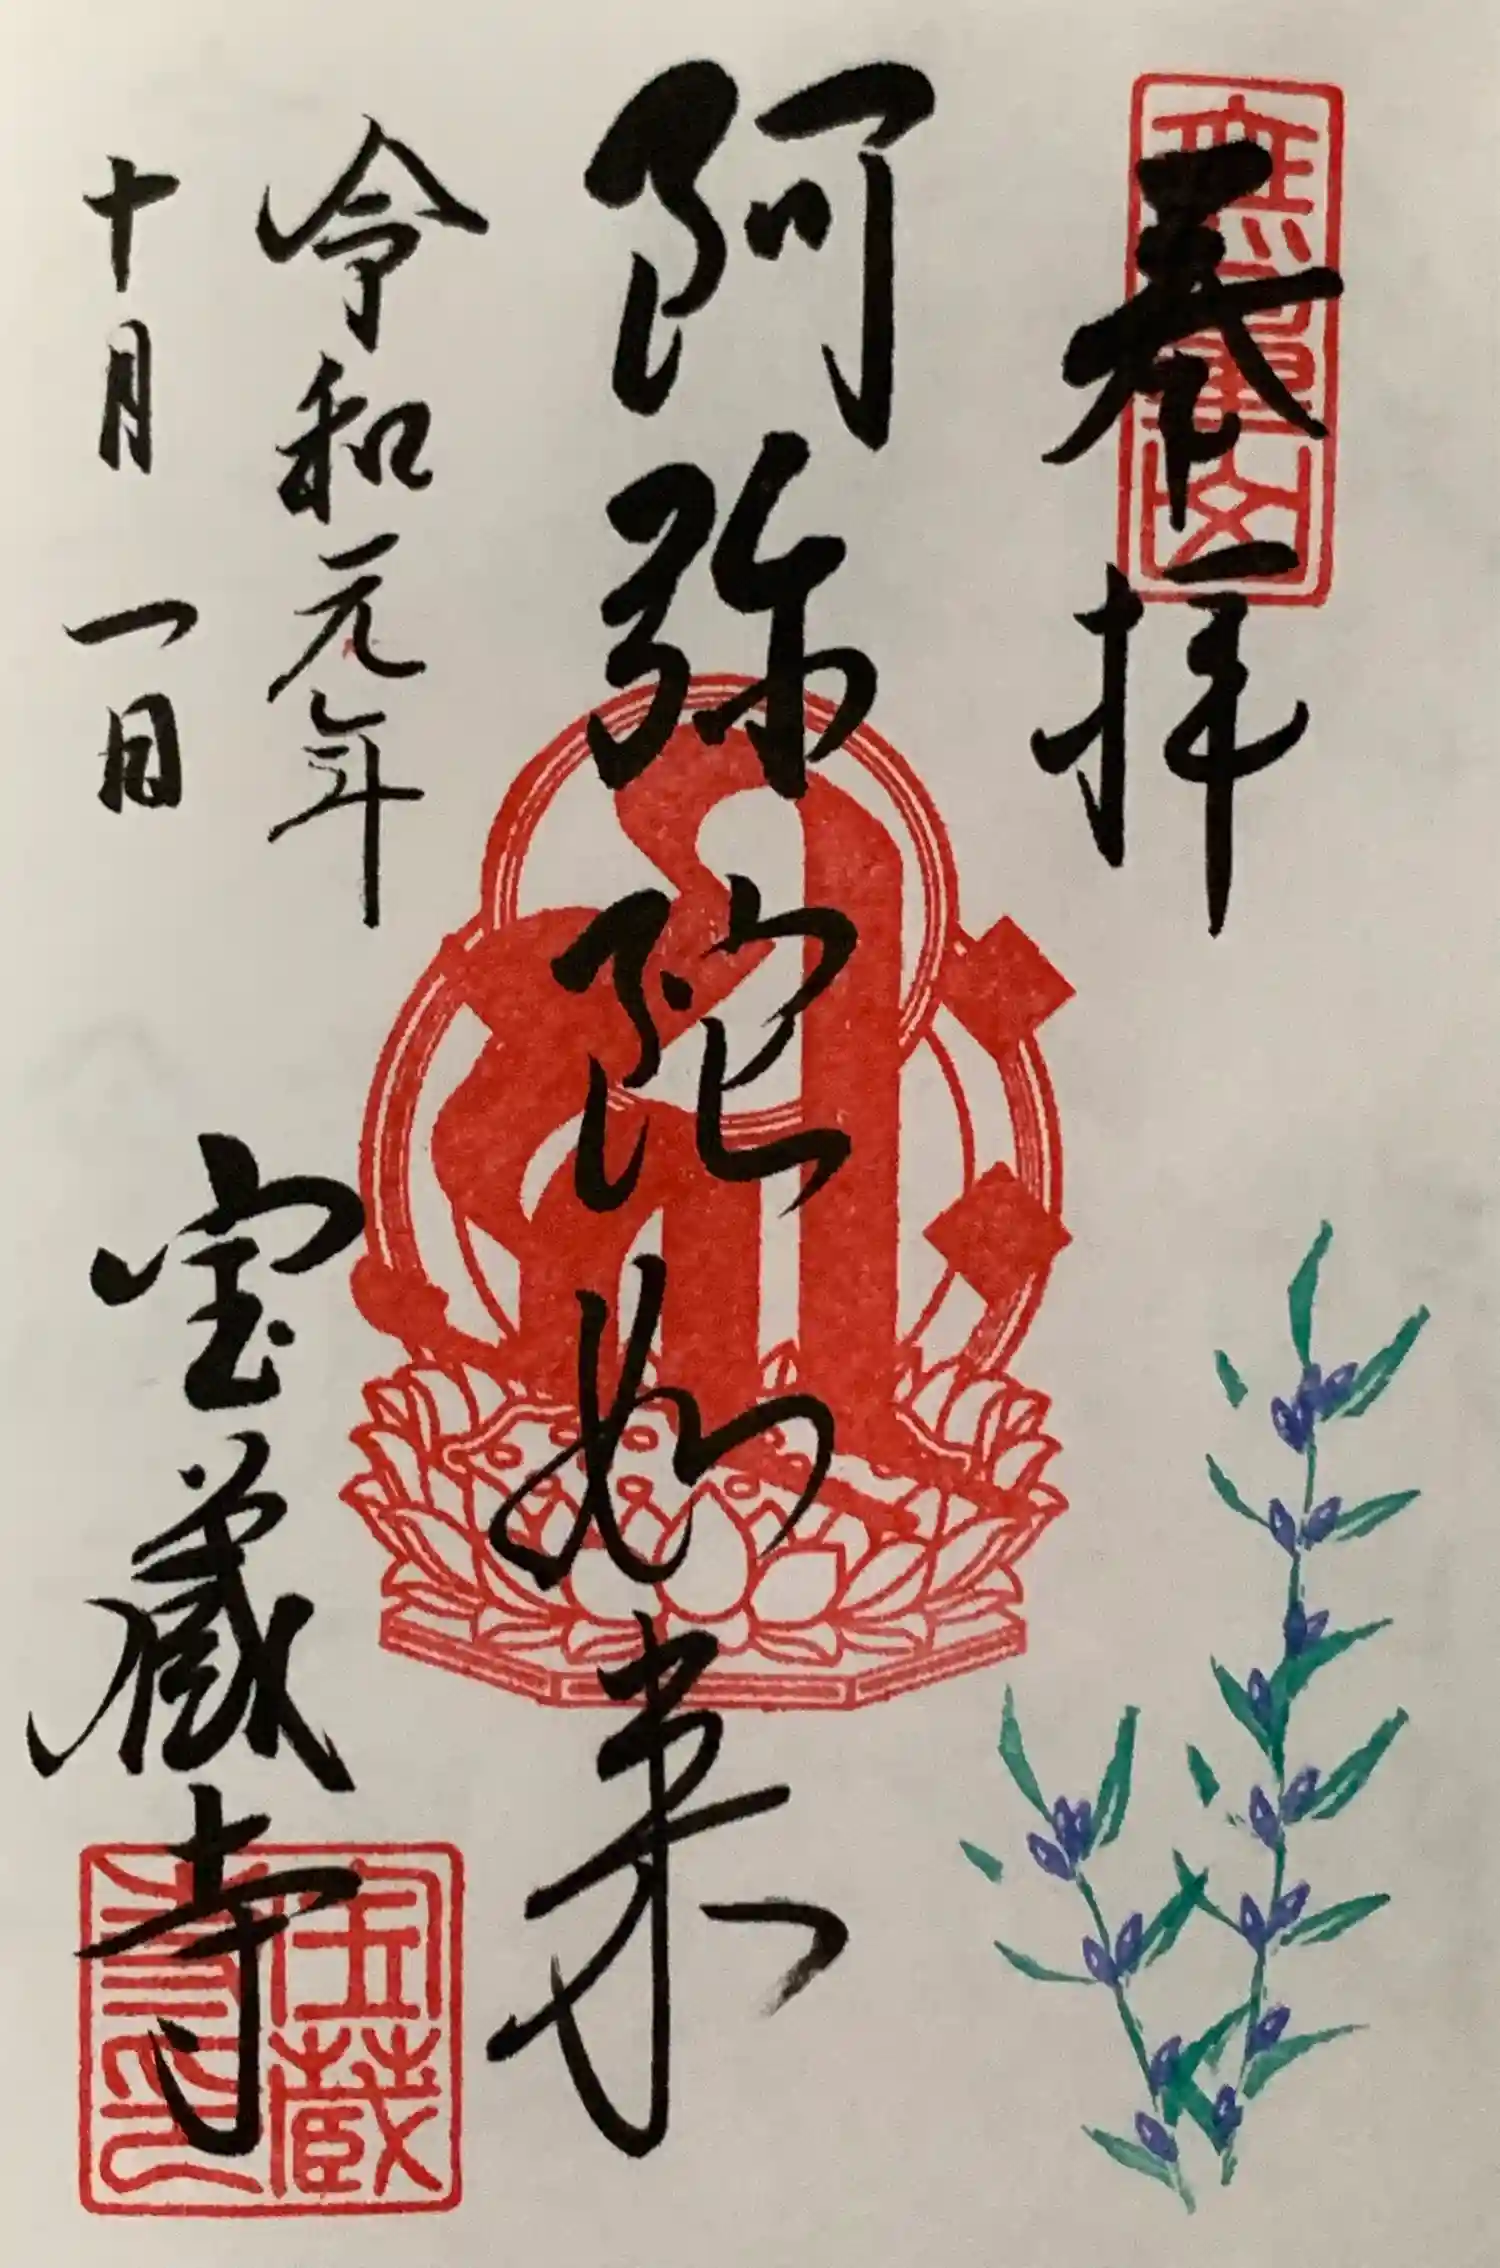 奉拝
阿弥陀如来
令和元年
十月一日
宝蔵寺
宝蔵寺印